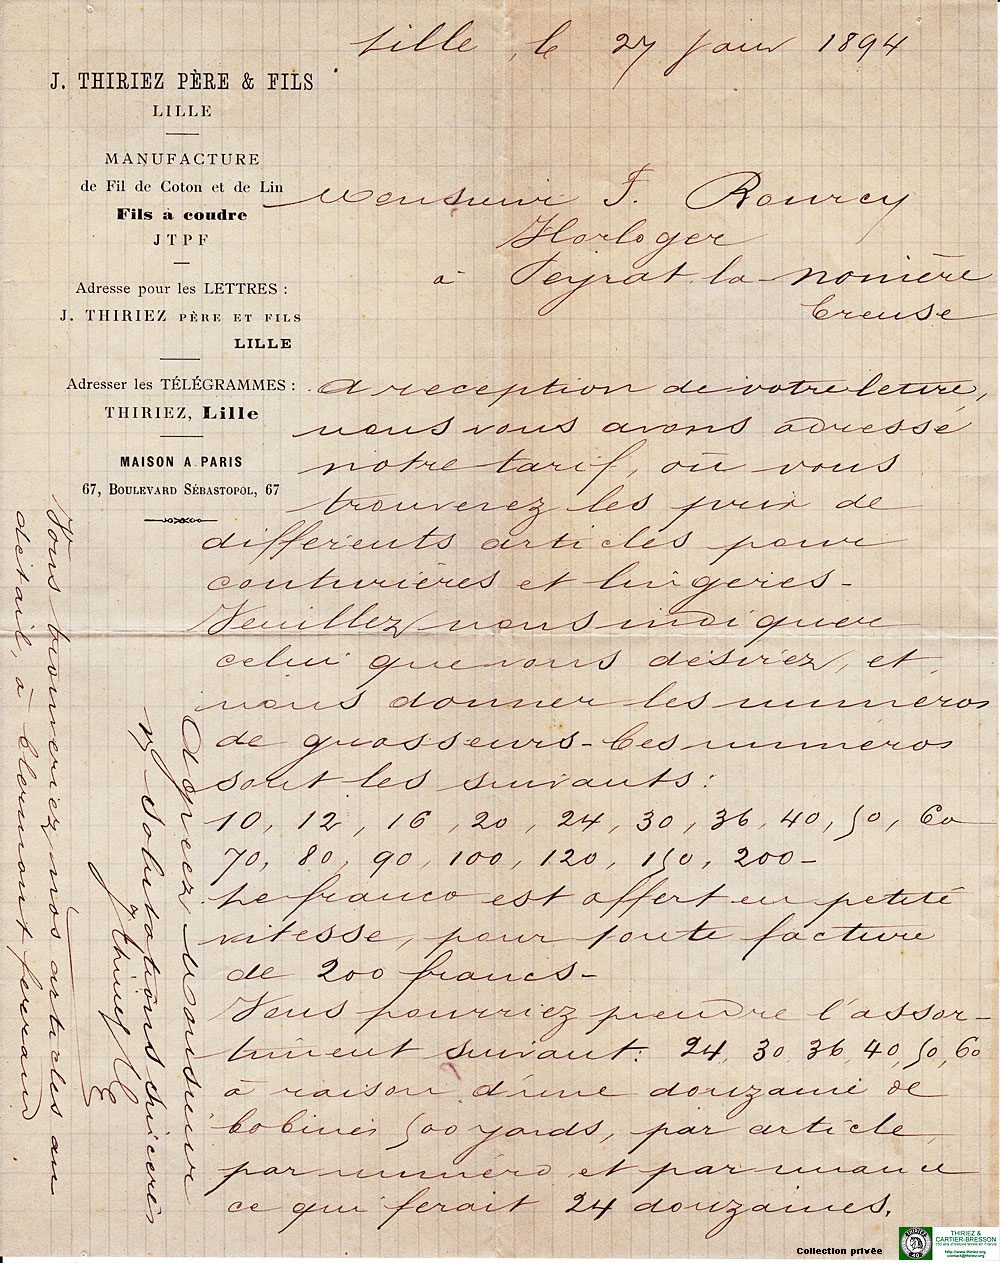 Lille, le 27 Janv 1894
J. THIRIEZ PÈRE & FILS
LILLE
MANUFACTURE
de Fil de Coton et de Lin
Fils à coudre
JTPF
Adresse pour les LETTRES :
J. THIRIEZ PÈRE ET FILS
LILLE
Adresser les TÉLÉGRAMMES :
THIRIEZ, Lille
MAISON A PARIS
67, BOULEVARD SÉBASTOPOL, 67
Monsieur F. Rourcy
Horloger
à Peyrat la nonière
Creuse
A reception de votre lettre,
nous vous avons adressé
notre tarif, où vous
trouverez les prix de
différents articles pour
couturières et lingères -
Veuillez nous indiquer
celui que vous désiriez, et
nous donner les numéros
de grosseurs - Ces numéros
sont les suivants :
10, 12, 16, 20, 24, 30, 36, 40, 50, 60
70, 80, 90, 100, 120, 150, 200 -
Le franco est offert en petite
vitesse, pour toute facture
de 200 francs -
Vous pourriez prendre l'assor-
timent suivant : 24, 30, 36, 40, 50, 60
à raison d'une douzaine de
bobines 500 yards, par article
par numéro et par nuance
ce qui ferait 24 douzaines.
Vous trouveriez nos articles au
détail, à Clermont ferrand.
Agréez Monsieur
Salutations sincères
Collection privée
THIRIEZ &
CARTIER-BRESSON
http://www.thiriez.org
contact@thiriez.org